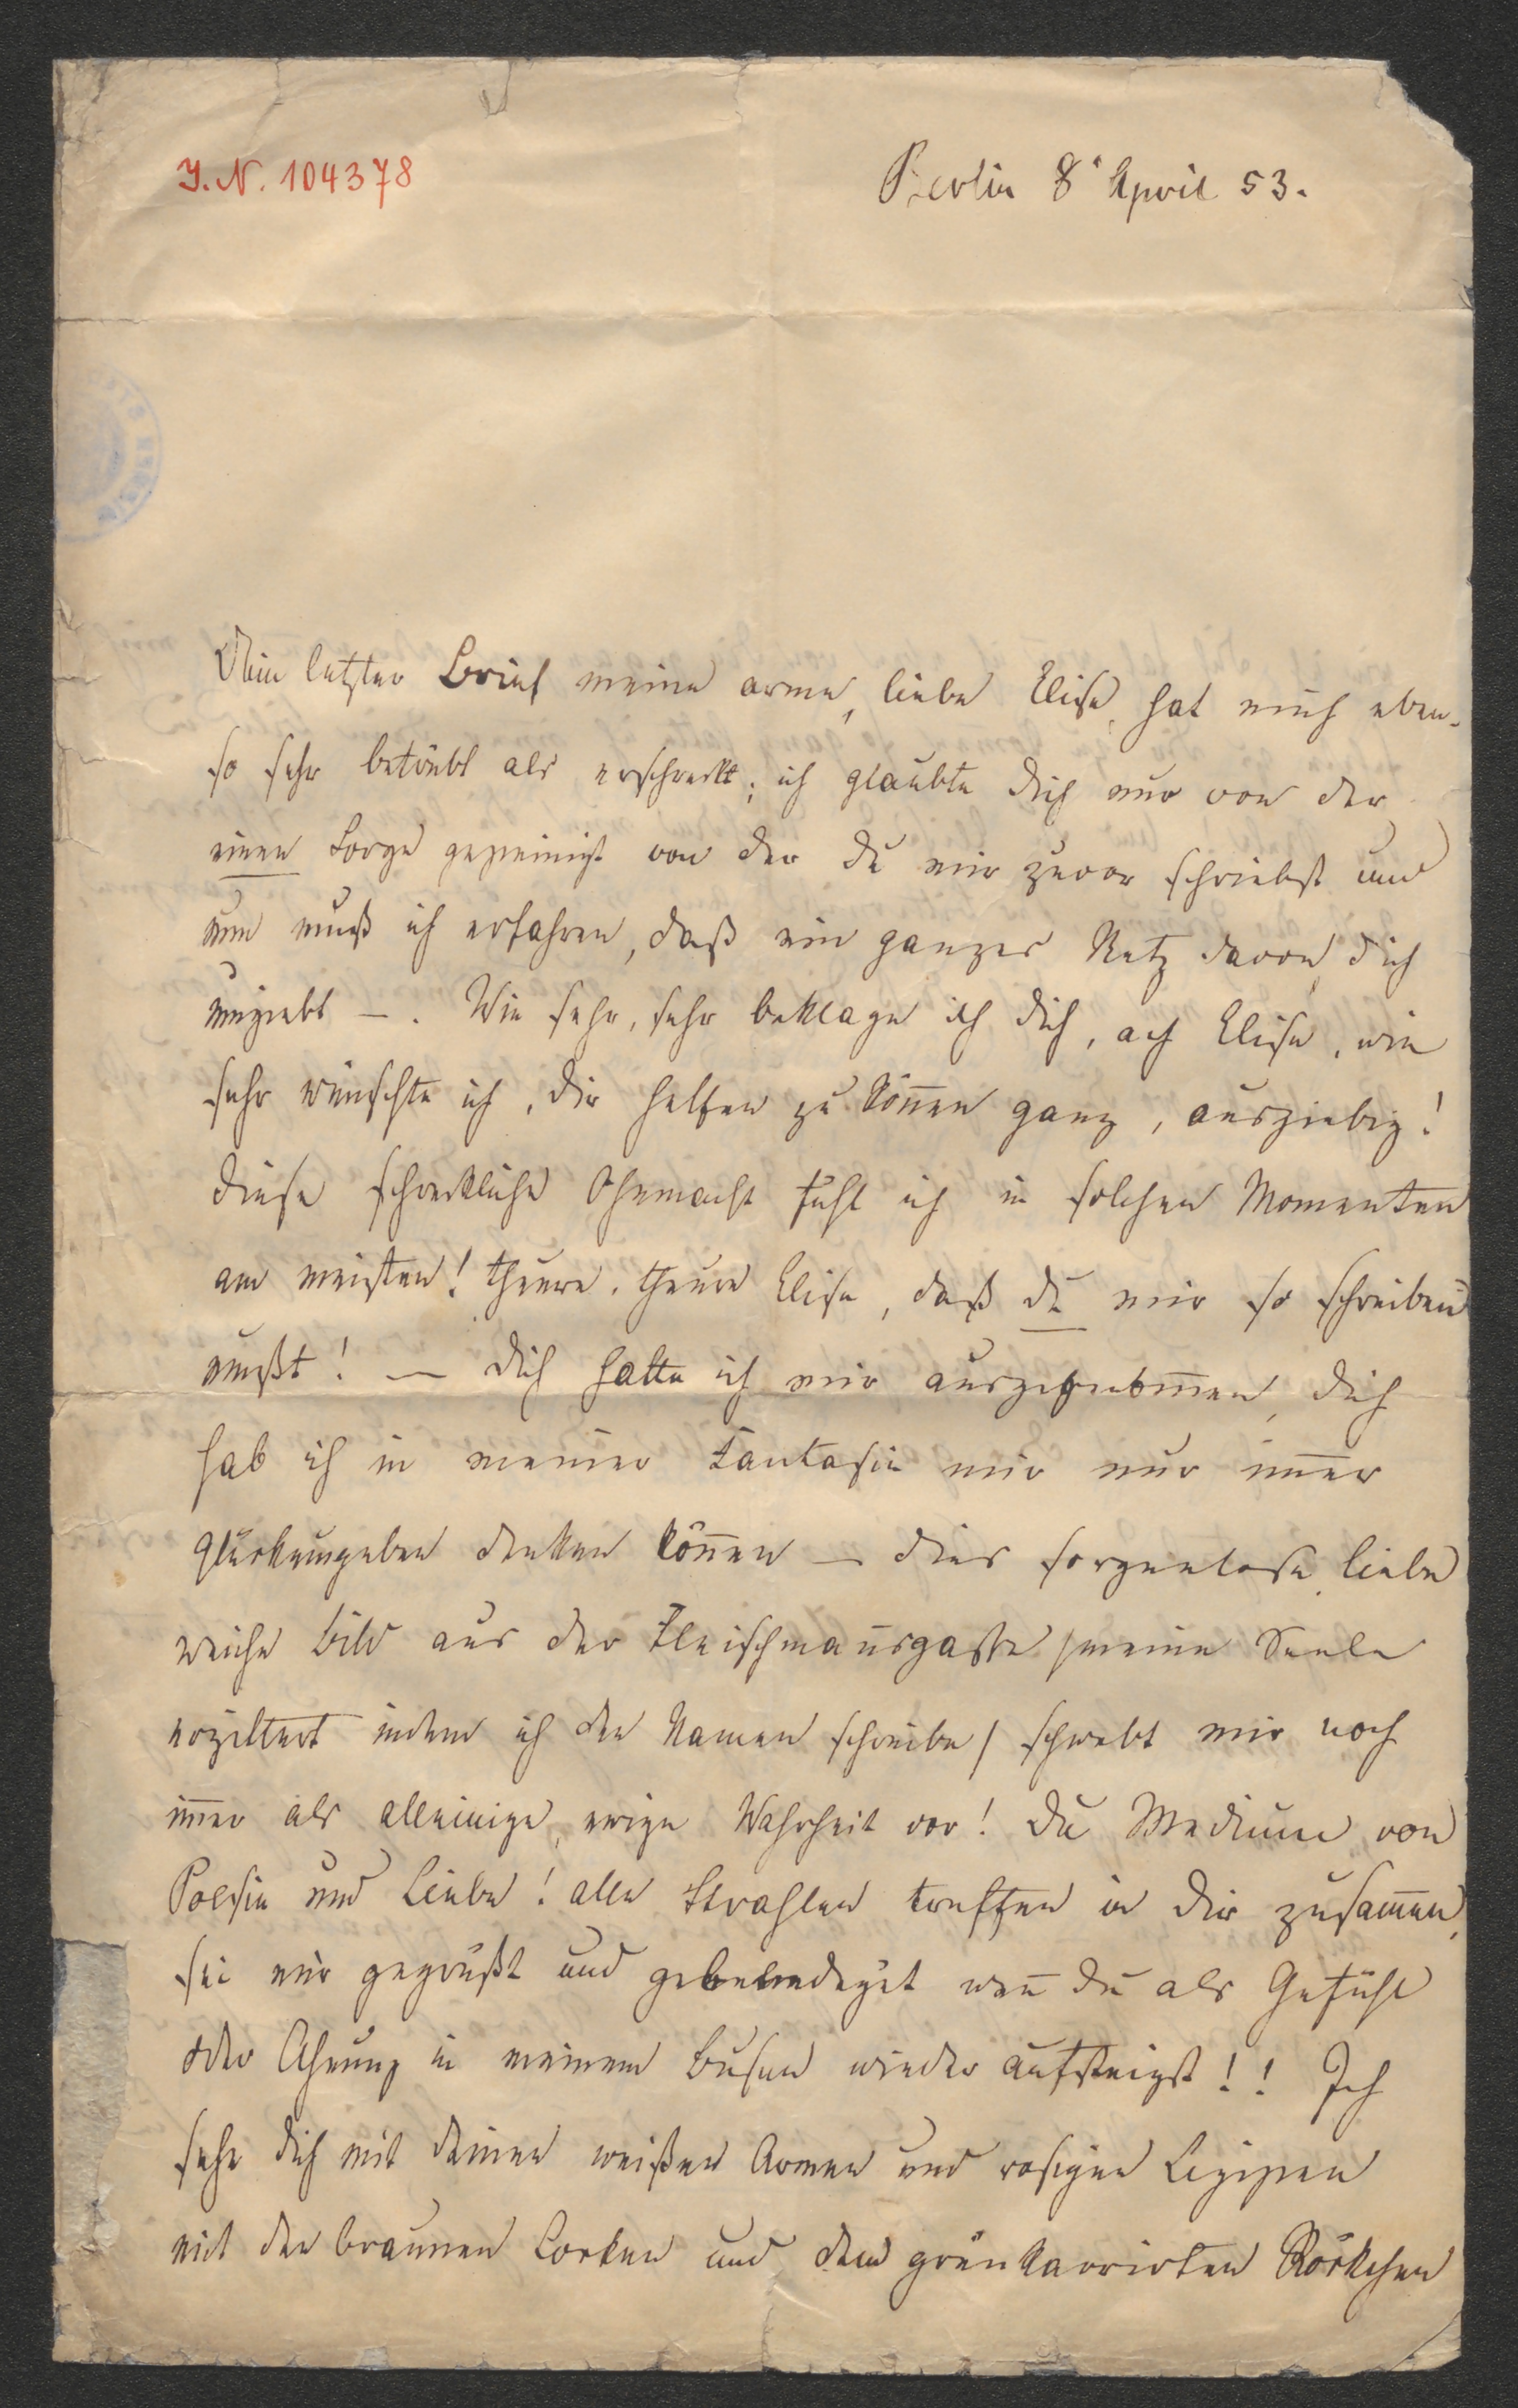 J. N. 104378
Berlin 8' April 53.
Dein letzter Brief meine arme, liebe Elise, hat mich eben-
so sehr betrübt als erschreckt; ich glaubte dich nur von der
einen Sorge gepeinigt von der du mir zuvor schriebst und
nun muß ich erfahren, daß ein ganzes Netz davon dich
umgiebt —. Wie sehr, sehr beklage ich dich, ach Elise, wie
sehr wünschte ich, dir helfen zu kön̄en ganz, ausgiebig!
diese schreckliche Ohnmacht fühl ich in solchen Momenten
am meisten! theure, theure Elise, daß du mir so schreiben
mußt! — dich hatte ich mir ausgenom̄en, dich
hab ich in meiner Fantasie mir nur im̄er
glückumgeben denken kön̄en — dies sorgenlose, liebe
weiche Bild aus der Fleischmansgasse /meine Seele
erzittert indem ich den Namen schreibe/ schwebt mir noch
im̄er als alleinige, ewige Wahrheit vor! Du Medium von
Poesie und Liebe! alle Strahlen treffen in dir zusam̄en,
sei mir gegrüßt und gebenedeyt wen̄ du als Gefühl
oder Ahnung in meinem Busen wieder aufsteigst!! Ich
sehe dich mit deinen weißen Armen und rosigen
mit den braunen Locken und dem grünkarrirten Röckchen